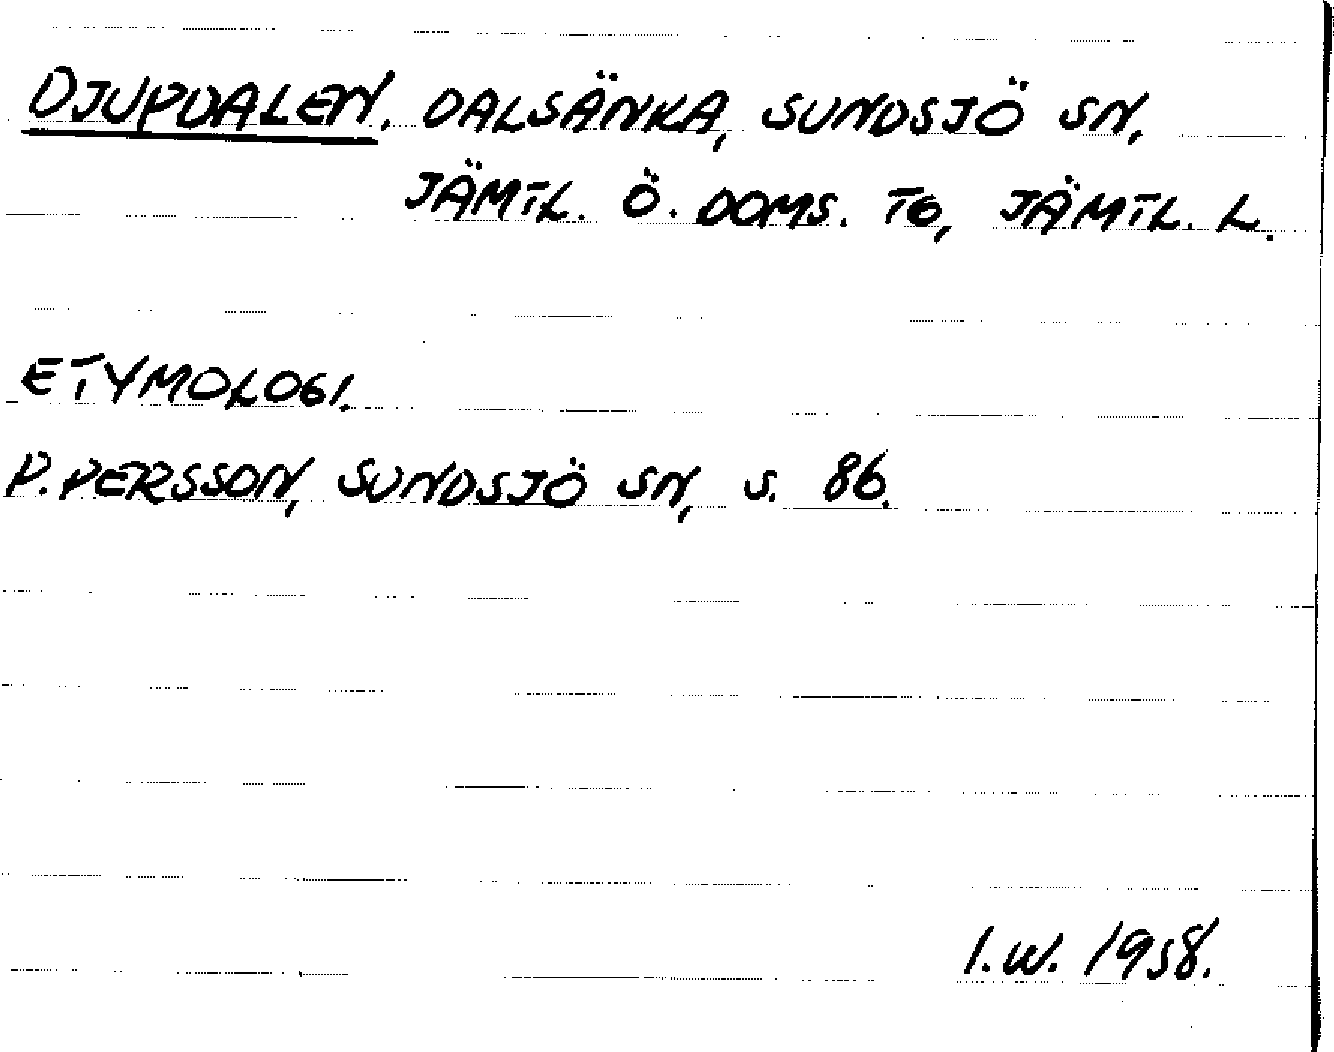 DJUPDALEN. DALSÄNKA, SUNDSJÖ SN,
JÄMTL. Ö. DOMS. TG, JÄMTL. L.
ETYMOLOGI.
P. PERSSON, SUNDSJÖ SN, S. 86.
I.W. 1958.